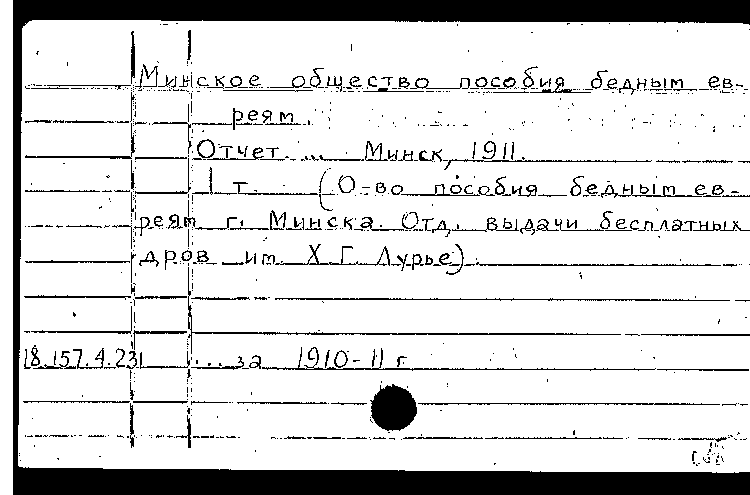 Минское общество пособия бедным ев-
реям.
Отчет ... Минск, 1911.
1 т. (О-во пособия бедным ев-
реям г. Минска. Отд. выдачи бесплатных
дров им. Х Г. Лурье).
18.157.4.231 ... за 1910-11 г